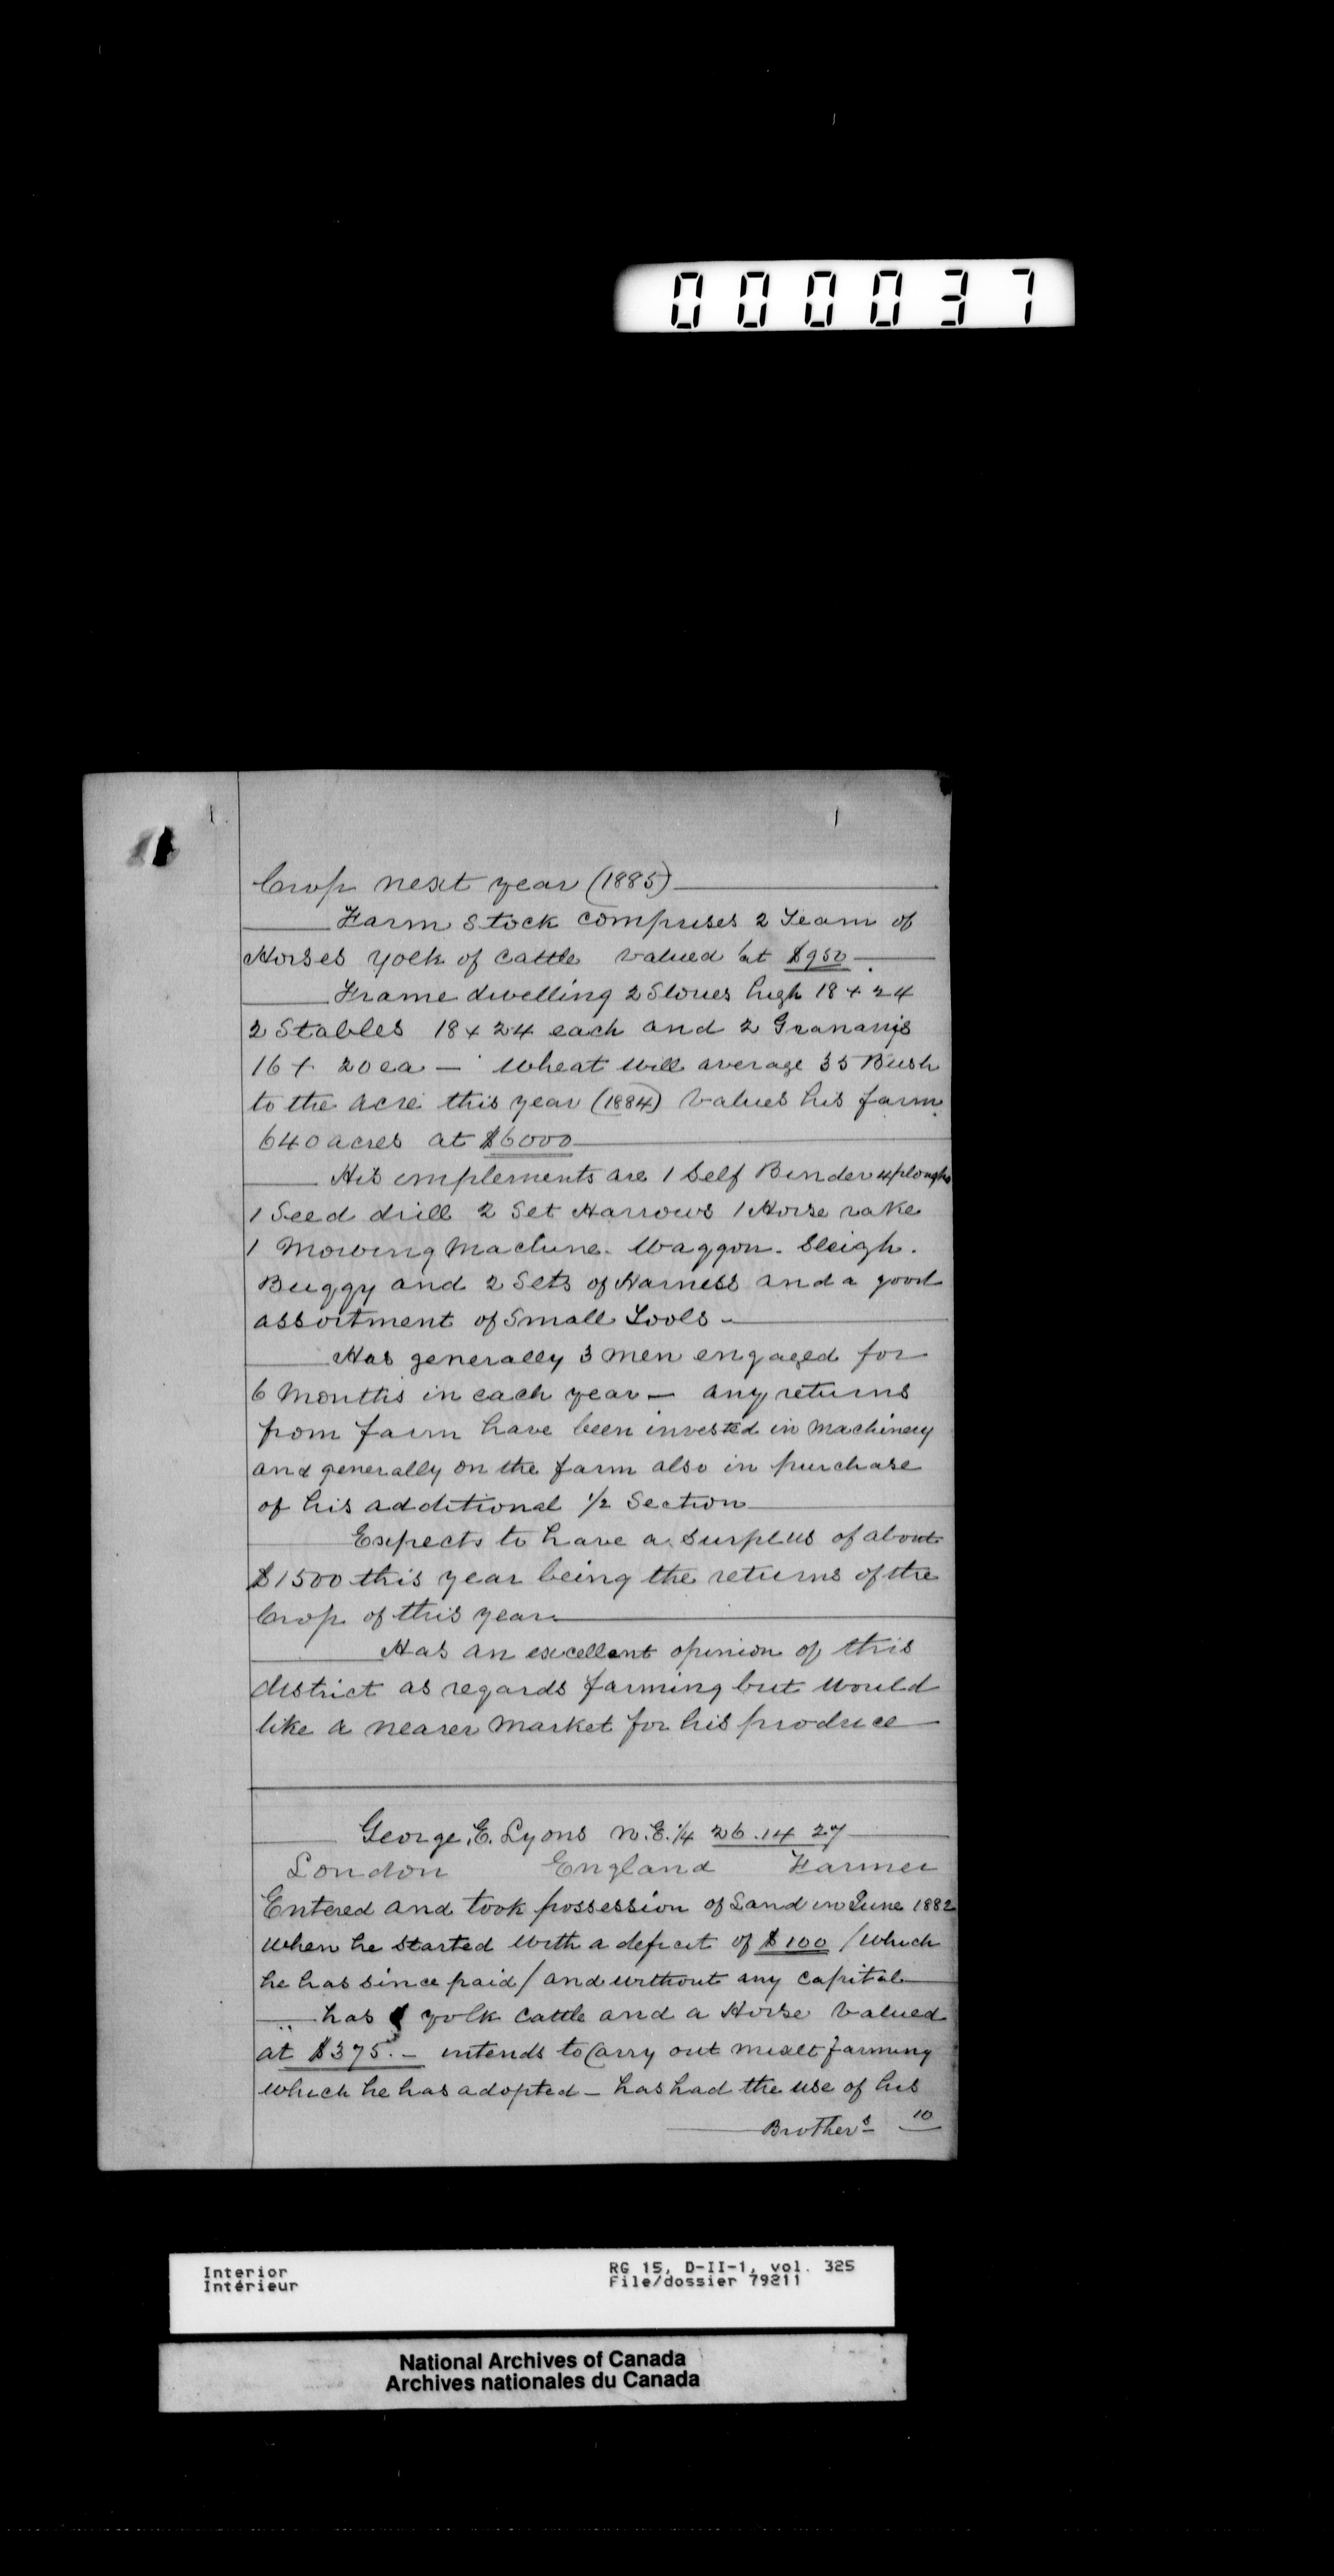 000037
Crop next year (1885)
Farm Stock comprises 2 Team of
Horses yoek of cattle valued at $950
Frame dwelling 2 Stories high 18 x 24
2 Stables 18 x 24 each and 2 Granarys
16 x 20 ea — Wheat will average 35 Bush
to the acre this year (1884) values his farm
640 acres at $6000
His implements are 1 Self Binder 4 ploughs
1 Seed drill 2 Set Harrows 1 Horse rake
1 Mowing Machine. Waggon. Sleigh.
Buggy and 2 Sets of Harness and a good
assortment of Small Tools —
Has generally 3 men engaged for
6 Months in each year — any returns
from farm have been invested in Machinery
and generally on the farm also in purchase
of his additional 1/2 Section
Expects to have a surplus of about
$1500 this year being the returns of the
Crop of this year
Has an excellent opinion of this
district as regards farming but would
like a nearer Market for his produce
George. E. Lyons N.E. 1/4 26.14 27
London England Farmer
Entered and took possession of Land in June 1882
when he started with a deficit of $100 / which
he has since paid / and without any capital
has yolk cattle and a Horse valued
at $375. — intends to Carry out mixet farming
which he has adopted — has had the use of his
Brothers 10
Interior RG 15, D-II-1, vol. 325
Intérieur File/dossier 79211
National Archives of Canada
Archives nationales du Canada